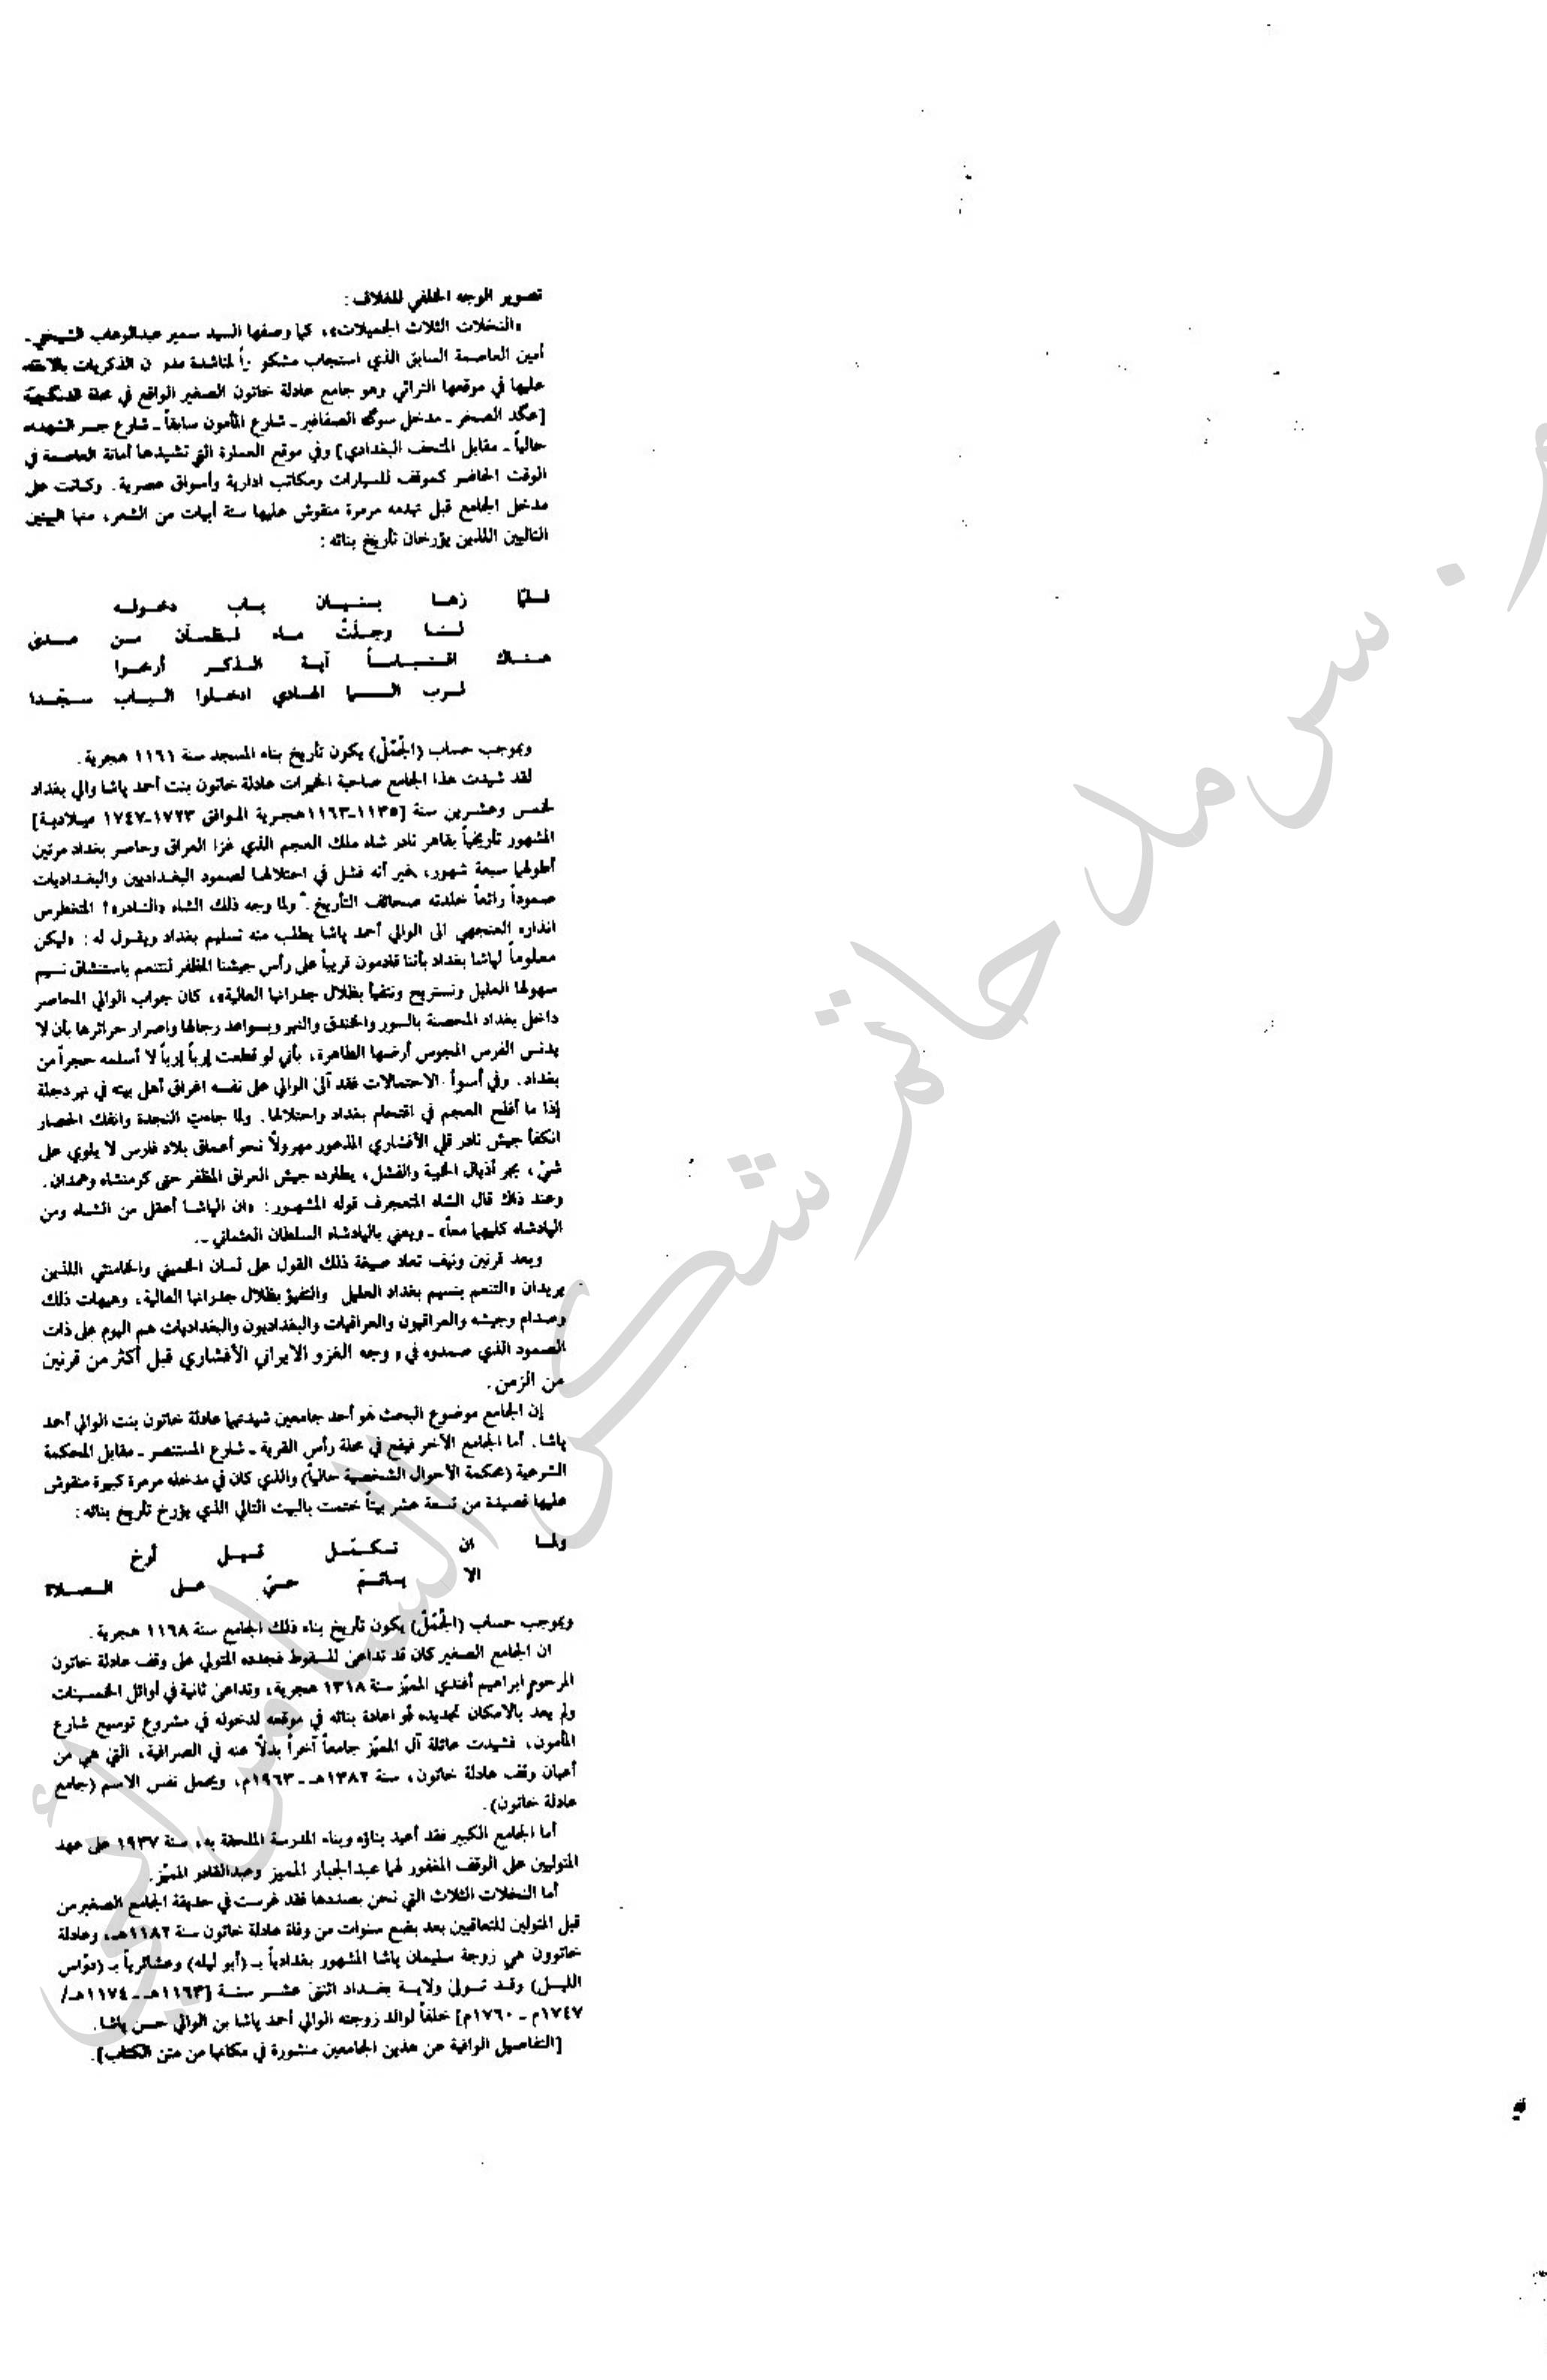 تصوير الوجه الخلفي للغلاف :
«النخلات الثلاث الجميلات»، كما وصفها السيد سمير عبدالوهاب الشيخلي ـ
أمين العاصمة السابق الذي استجاب مشكوراً لمناشدة مدون الذكريات بالابقاء
عليها في موقعها التراثي وهو جامع عادلة خاتون الصغير الواقع في محلة الدنگچية
[عگد الصخر ـ مدخل سوگ الصفافير ـ شارع المأمون سابقاً ـ شارع جسر الشهداء
حالياً ـ مقابل المتحف البغدادي] وفي موقع العمارة التي تشيدها أمانة العاصمة في
الوقت الحاضر كموقف للسيارات ومكاتب ادارية وأسواق عصرية. وكانت على
مدخل الجامع قبل تهدمه مرمرة منقوش عليها ستة أبيات من الشعر، منها البيتين
التاليين اللذين يؤرخان تأريخ بنائه :
فلمّا زها بنيان باب دخوله
لنا وجلّت ماء لظمآن من صدى
هناك اقتباساً آية الذكر أرخوا
لرب السما الهادي ادخلوا الباب سجّدا
وبموجب حساب (الجُمّل) يكون تأريخ بناء المسجد سنة ١١٦١ هجرية.
لقد شيدت هذا الجامع صاحبة الخيرات عادلة خاتون بنت أحمد پاشا والي بغداد
لخمس وعشرين سنة [١١٣٥ـ١١٦٣هجرية الموافق ١٧٢٣ـ١٧٤٧ ميلادية]
المشهور تأريخياً بقاهر نادر شاه ملك العجم الذي غزا العراق وحاصر بغداد مرتين
أطولهما سبعة شهور، غير أنه فشل في احتلالها لصمود البغداديين والبغداديات
صموداً رائعاً خلدته صحائف التأريخ. ولما وجه ذلك الشاه «النادر»! المتغطرس
انذاره العنجهي الى الوالي أحمد پاشا يطلب منه تسليم بغداد ويقول له : «ليكن
معلوماً لپاشا بغداد بأننا قادمون قريباً على رأس جيشنا المظفر لنتنعم باستنشاق نسيم
سهولها العليل ونستريح ونتفيأ بظلال جدرانها العالية»، كان جواب الوالي المحاصر
داخل بغداد المحصنة بالسور والخندق والنهر وبسواعد رجالها واصرار حرائرها بأن لا
يدنس الفرس المجوس أرضها الطاهرة، بأني لو قطعت إرباً إرباً لا أسلمه حجراً من
بغداد. وفي أسوأ الاحتمالات فقد آلى الوالي على نفسه اغراق أهل بيته في نهر دجلة
إذا ما أفلح العجم في اقتحام بغداد واحتلالها. ولما جاءت النجدة وانفك الحصار
انكفأ جيش نادر قلي الأفشاري المذعور مهرولاً نحو أعماق بلاد فارس لا يلوي على
شيء، يجر أذيال الخيبة والفشل، يطارده جيش العراق المظفر حتى كرمنشاه وهمدان.
وعند ذاك قال الشاه المتعجرف قوله المشهور : «ان الپاشا أعقل من الشاه ومن
الپادشاه كليهما معاً» ـ ويعني بالپادشاه السلطان العثماني ـ.
وبعد قرنين ونيف تعاد صيغة ذلك القول على لسان الخميني والخامنئي اللذين
يريدان «التنعم بنسيم بغداد العليل والتفيؤ بظلال جدرانها العالية، وهيهات ذلك
وصدام وجيشه والعراقيون والعراقيات والبغداديون والبغداديات هم اليوم على ذات
الصمود الذي صمدوه في وجه الغزو الايراني الأفشاري قبل أكثر من قرنين
من الزمن.
إن الجامع موضوع البحث هو أحد جامعين شيدتهما عادلة خاتون بنت الوالي أحمد
پاشا. أما الجامع الآخر فيقع في محلة رأس القرية ـ شارع المستنصر ـ مقابل المحكمة
الشرعية (محكمة الأحوال الشخصية حالياً) والذي كان في مدخله مرمرة كبيرة منقوش
عليها قصيدة من تسعة عشر بيتاً ختمت بالبيت التالي الذي يؤرخ تأريخ بنائه :
ولما ان تكمّل قيل أرخ
الا يانتمّ حيّ على الصلاة
وبموجب حساب (الجُمّل) يكون تأريخ بناء ذلك الجامع سنة ١١٦٨ هجرية.
ان الجامع الصغير كان قد تداعى للسقوط فجدده المتولي على وقف عادلة خاتون
المرحوم ابراهيم أفندي المميّز سنة ١٣١٨ هجرية، وتداعى ثانية في أوائل الخمسينات
ولم يعد بالامكان تجديده أو اعادة بنائه في موقعه لدخوله في مشروع توسيع شارع
المأمون، فشيدت عائلة آل المميّز جامعاً آخراً بدلاً عنه في الصرافية، التي هي من
أعيان وقف عادلة خاتون، سنة ١٣٨٢هـ ـ ١٩٦٣م، ويحمل نفس الاسم (جامع
عادلة خاتون).
أما الجامع الكبير فقد أعيد بناؤه وبناء المدرسة الملحقة به، سنة ١٩٣٧ على عهد
المتوليين على الوقف المغفور لهما عبدالجبار المميز وعبدالقادر المميّز.
أما النخلات الثلاث التي نحن بصددها فقد غرست في حديقة الجامع الصغير من
قبل المتولين المتعاقبين بعد بضع سنوات من وفاة عادلة خاتون سنة ١١٨٢هـ، وعادلة
خاتوون هي زوجة سليمان پاشا المشهور بغدادياً بـ (أبو ليله) وعشائرياً بـ (دوّاس
الليل) وقد تولى ولاية بغداد اثنتي عشر سنة [١١٦٣هـ ـ ١١٧٤هـ/
١٧٤٧م ـ ١٧٦٠م] خلفاً لوالد زوجته الوالي أحمد پاشا بن الوالي حسن پاشا.
[التفاصيل الوافية عن هذين الجامعين منشورة في مكانها من متن الكتاب].